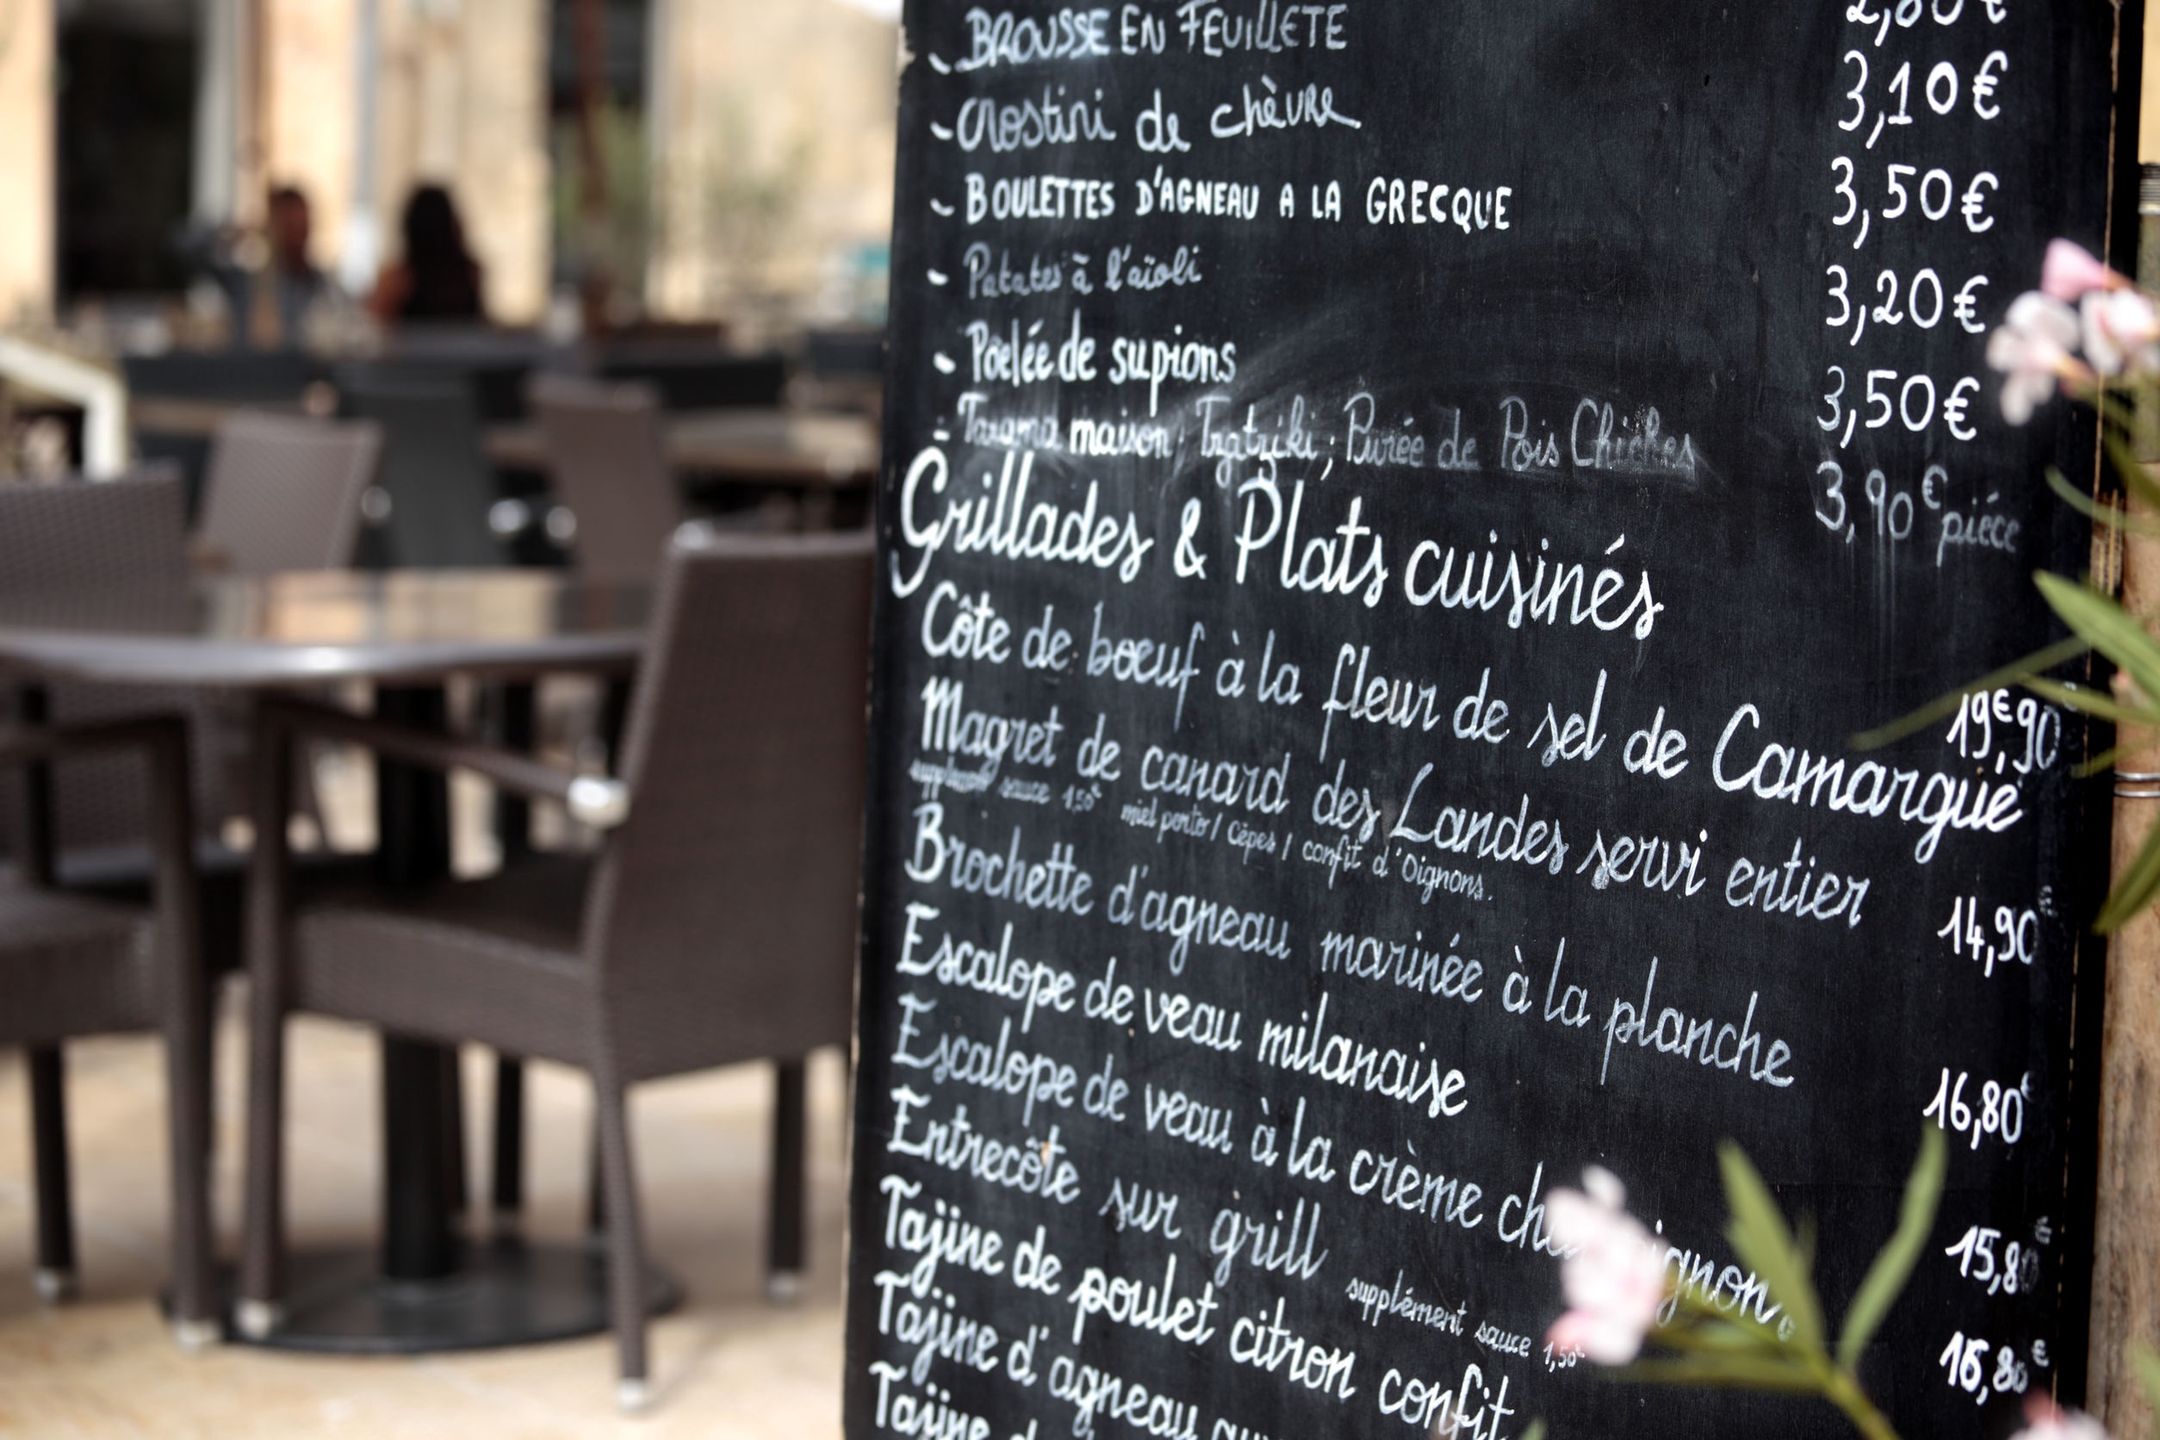 BROUSSE EN FEUILLETE 2,80€
Crostini de chèvre 3,10€
BOULETTES D'AGNEAU A LA GRECQUE 3,50€
Patates à l'aïoli 3,20€
Poêlée de supions 3,50€
Tarama maison; Tzatziki; Purée de Pois Chiches 3,90€ piéce
Grillades & Plats cuisinés
Côte de boeuf à la fleur de sel de Camargue 19€,90
Magret de canard des Landes servi entier 14,90€
supplément sauce 1,50€ miel porto / Cèpes / confit d'Oignons.
Brochette d'agneau marinée à la planche 16,80€
Escalope de veau milanaise 15,80€
Escalope de veau à la crème champignons 16,80€
Entrecôte sur grill supplément sauce 1,50€
Tajine de poulet citron confit
Tajine d'agneau
Tajine